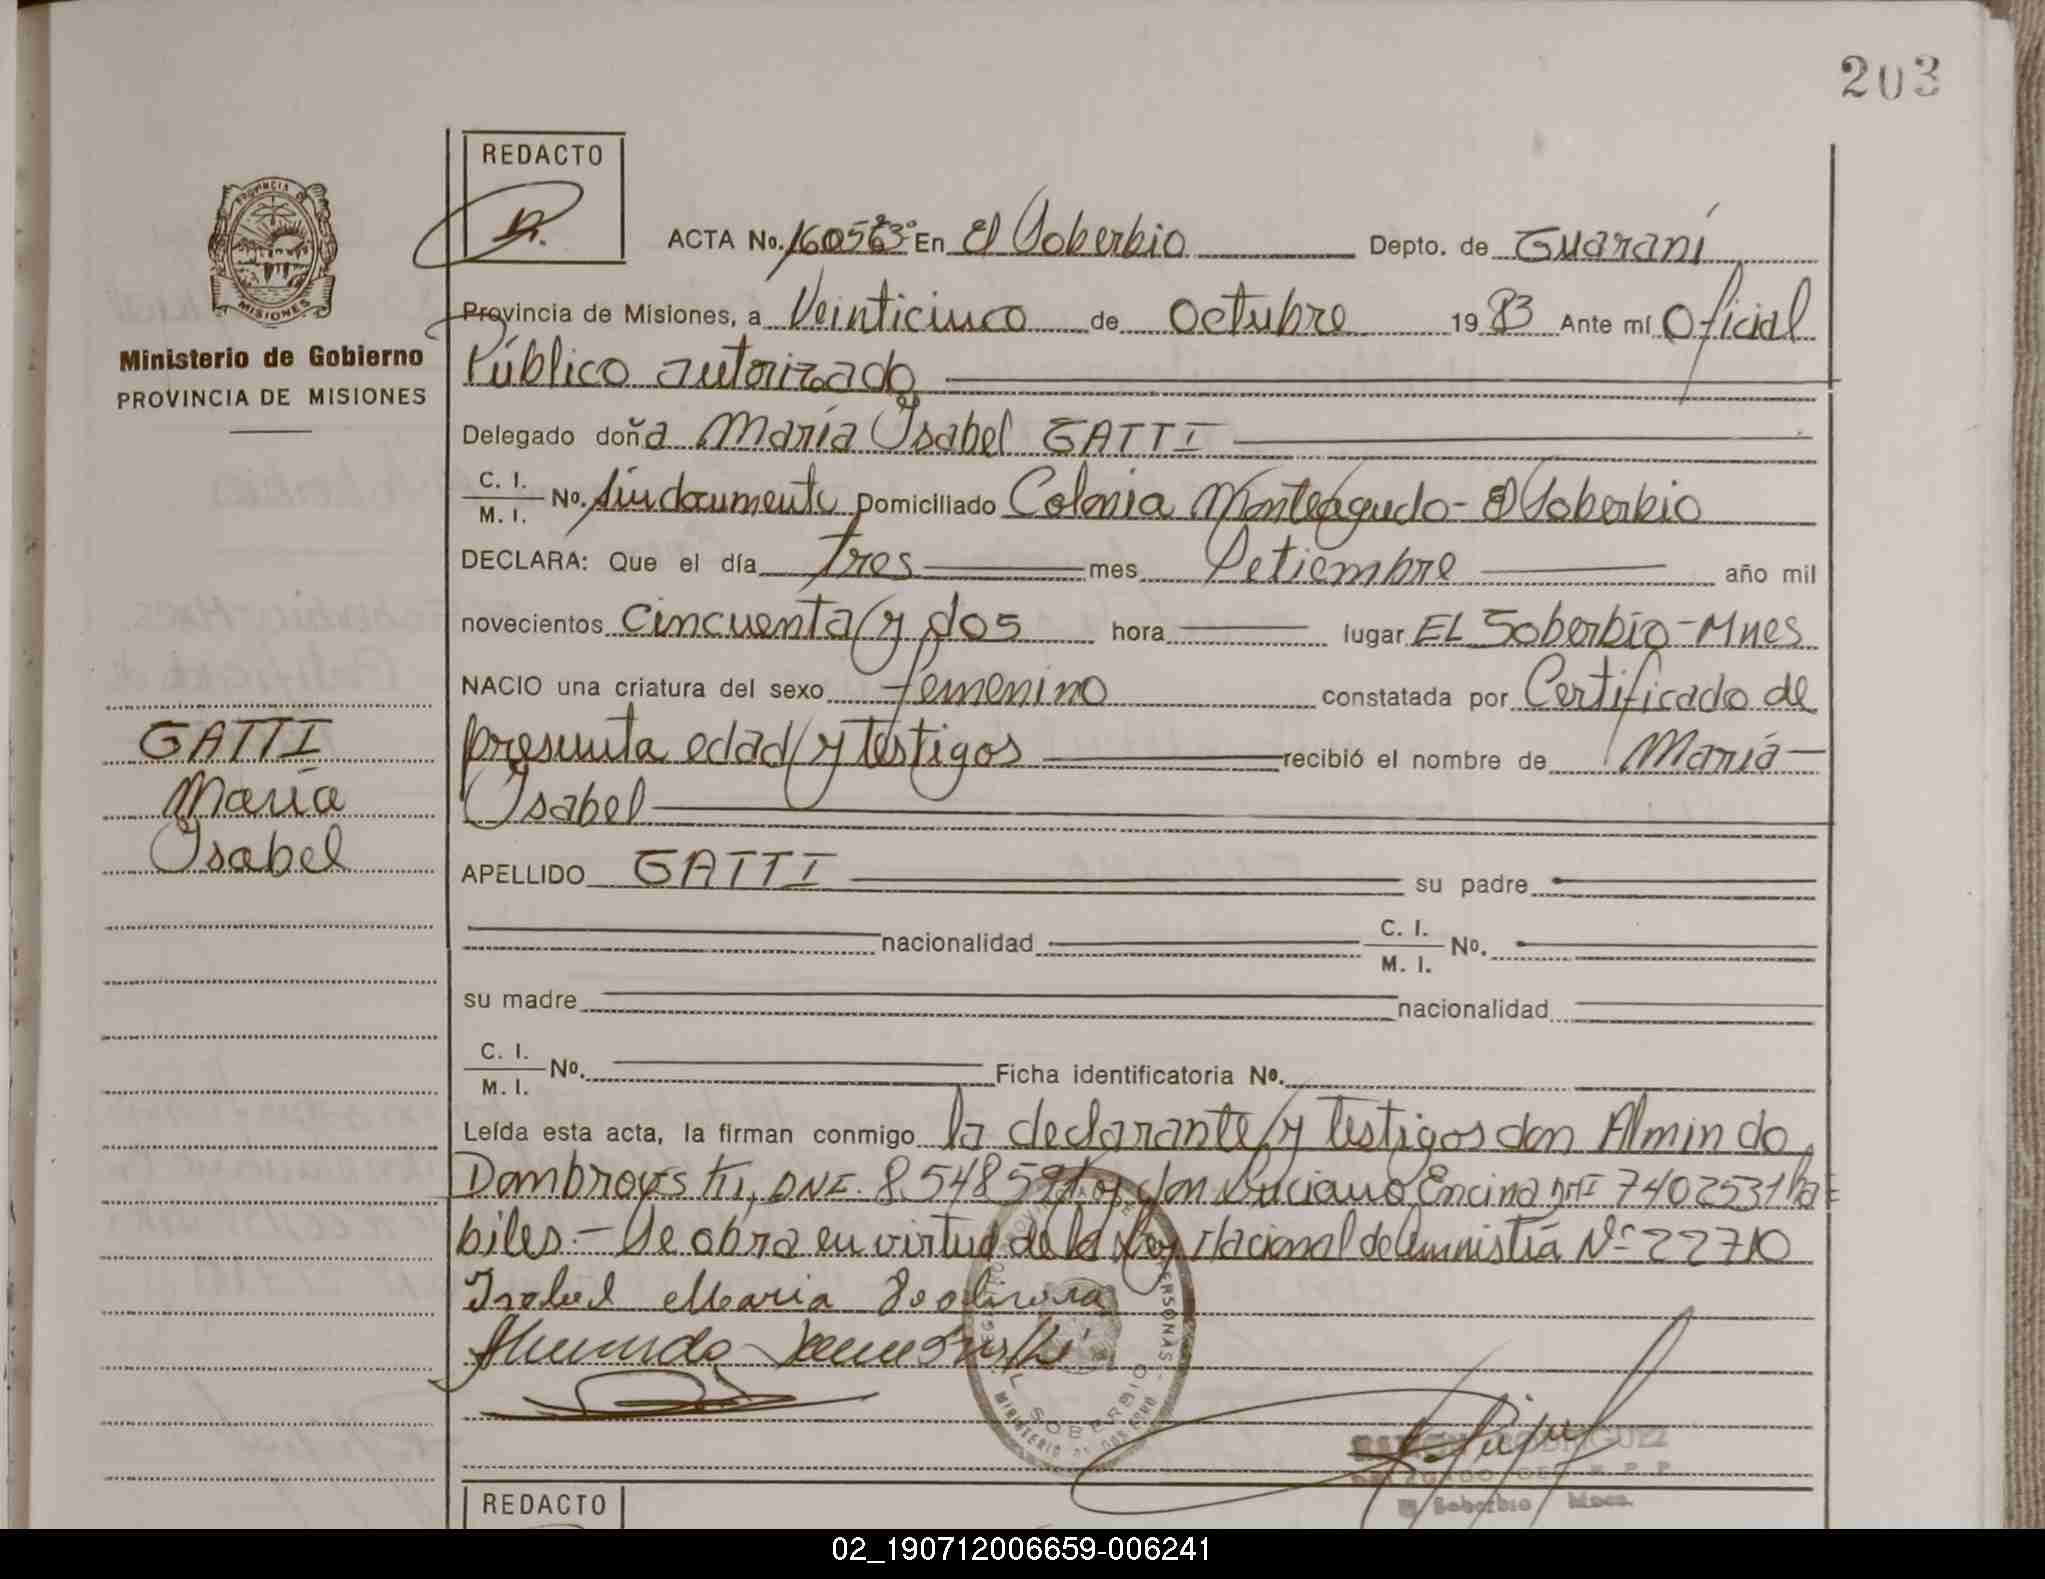 203
REDACTO
ACTA No. En El Soberbio Depto. de Guaraní
Provincia de Misiones, a Veinticinco de Octubre 1983 Ante mí Oficial
Público autorizado
Delegado doña María Ysabel GATTI
C. I. M. I. No. sin documento Domiciliado Colonia Monteagudo - El Soberbio
DECLARA: Que el día tres mes Setiembre año mil
novecientos cincuenta y dos hora lugar EL Soberbio - Mnes
NACIO una criatura del sexo femenino constatada por Certificado de
presunta edad y testigos recibió el nombre de María
Ysabel
APELLIDO GATTI su padre
nacionalidad C. I. M. I. No.
su madre nacionalidad
C. I. M. I. No. Ficha identificatoria No.
Leída esta acta, la firman conmigo la declarante y testigos don Almindo
DNI. y don Luciano Encina DNI 7402531 ha=
biles.- Se obra en virtud de la Ley Nacional de Amnistía Nº 22710
Isabel Maria
PROVINCIA DE MISIONES
Ministerio de Gobierno
PROVINCIA DE MISIONES
GATTI
María
Ysabel
PERSONAS
SOBERBIO
MINISTERIO DE GOBIERNO
RODRIGUEZ
El Soberbio Mnes.
REDACTO
02_190712006659-006241